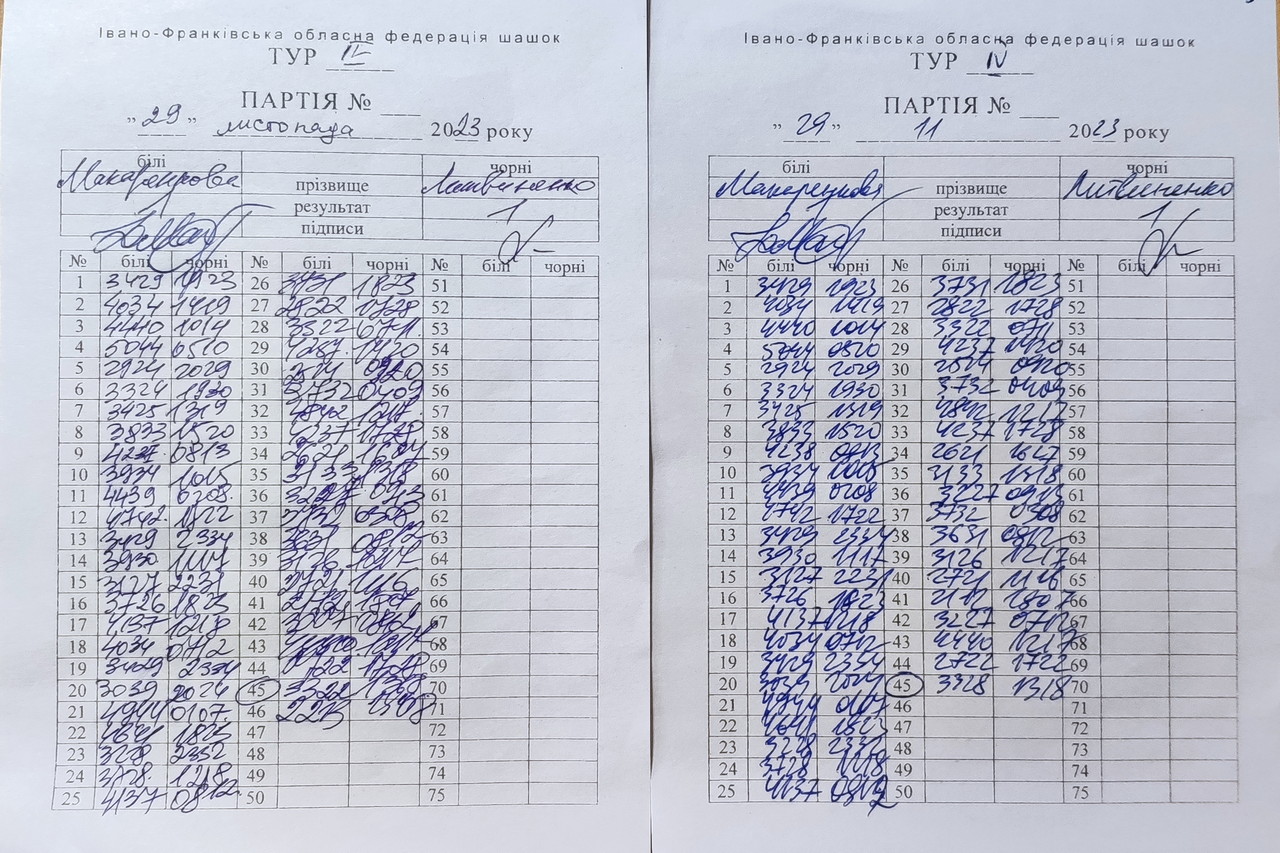 Івано-Франківська обласна федерація шашок
ТУР IV
ПАРТІЯ №
„ 29 ” листопада 2023 року
білі чорні
прізвище
результат 1
підписи
№ білі чорні № білі чорні № білі чорні
1 3429 1923 26 3731 1823 51
2 4034 1419 27 2822 1728 52
3 4440 1014 28 3322 53
4 5044 0510 29 4237 1420 54
5 2924 2029 30 55
6 3324 1930 31 3732 0409 56
7 3425 1319 32 4842 1217 57
8 3833 1520 33 4237 1728 58
9 0813 34 2621 59
10 3934 1015 35 3133 1318 60
11 4439 0208 36 3227 61
12 4742 37 3732 0308 62
13 3429 2334 38 0812 63
14 3930 1117 39 3126 1217 64
15 3127 2231 40 2721 1116 65
16 3726 1823 41 66
17 4137 1218 42 67
18 4034 0712 43 68
19 3429 2334 44 69
20 3039 2024 45 70
21 4944 0107 46 71
22 4641 1823 47 72
23 3228 2332 48 73
24 3728 1218 49 74
25 4137 0812 50 75
Івано-Франківська обласна федерація шашок
ТУР IV
ПАРТІЯ №
„ 29 ” 11 2023 року
білі чорні
прізвище Литвиненко
результат 1
підписи
№ білі чорні № білі чорні № білі чорні
1 3429 1923 26 3731 1823 51
2 1419 27 2822 1728 52
3 4440 1014 28 3322 0711 53
4 5044 0510 29 4237 1420 54
5 2924 2029 30 0920 55
6 3324 1930 31 3732 0409 56
7 3425 1319 32 4842 1217 57
8 3833 1520 33 4237 1728 58
9 4238 0813 34 2621 1627 59
10 3934 1015 35 3133 1318 60
11 4439 0208 36 3227 0913 61
12 4742 1722 37 3732 0308 62
13 3429 2334 38 3631 0812 63
14 3930 1117 39 3126 1217 64
15 3127 2231 40 2721 1116 65
16 3726 1823 41 66
17 4137 1218 42 3227 0712 67
18 4034 0712 43 4440 1217 68
19 3429 2334 44 2722 1722 69
20 3039 2024 45 3328 1318 70
21 4944 0107 46 71
22 4641 1823 47 72
23 3228 2332 48 73
24 3728 1218 49 74
25 4137 0812 50 75